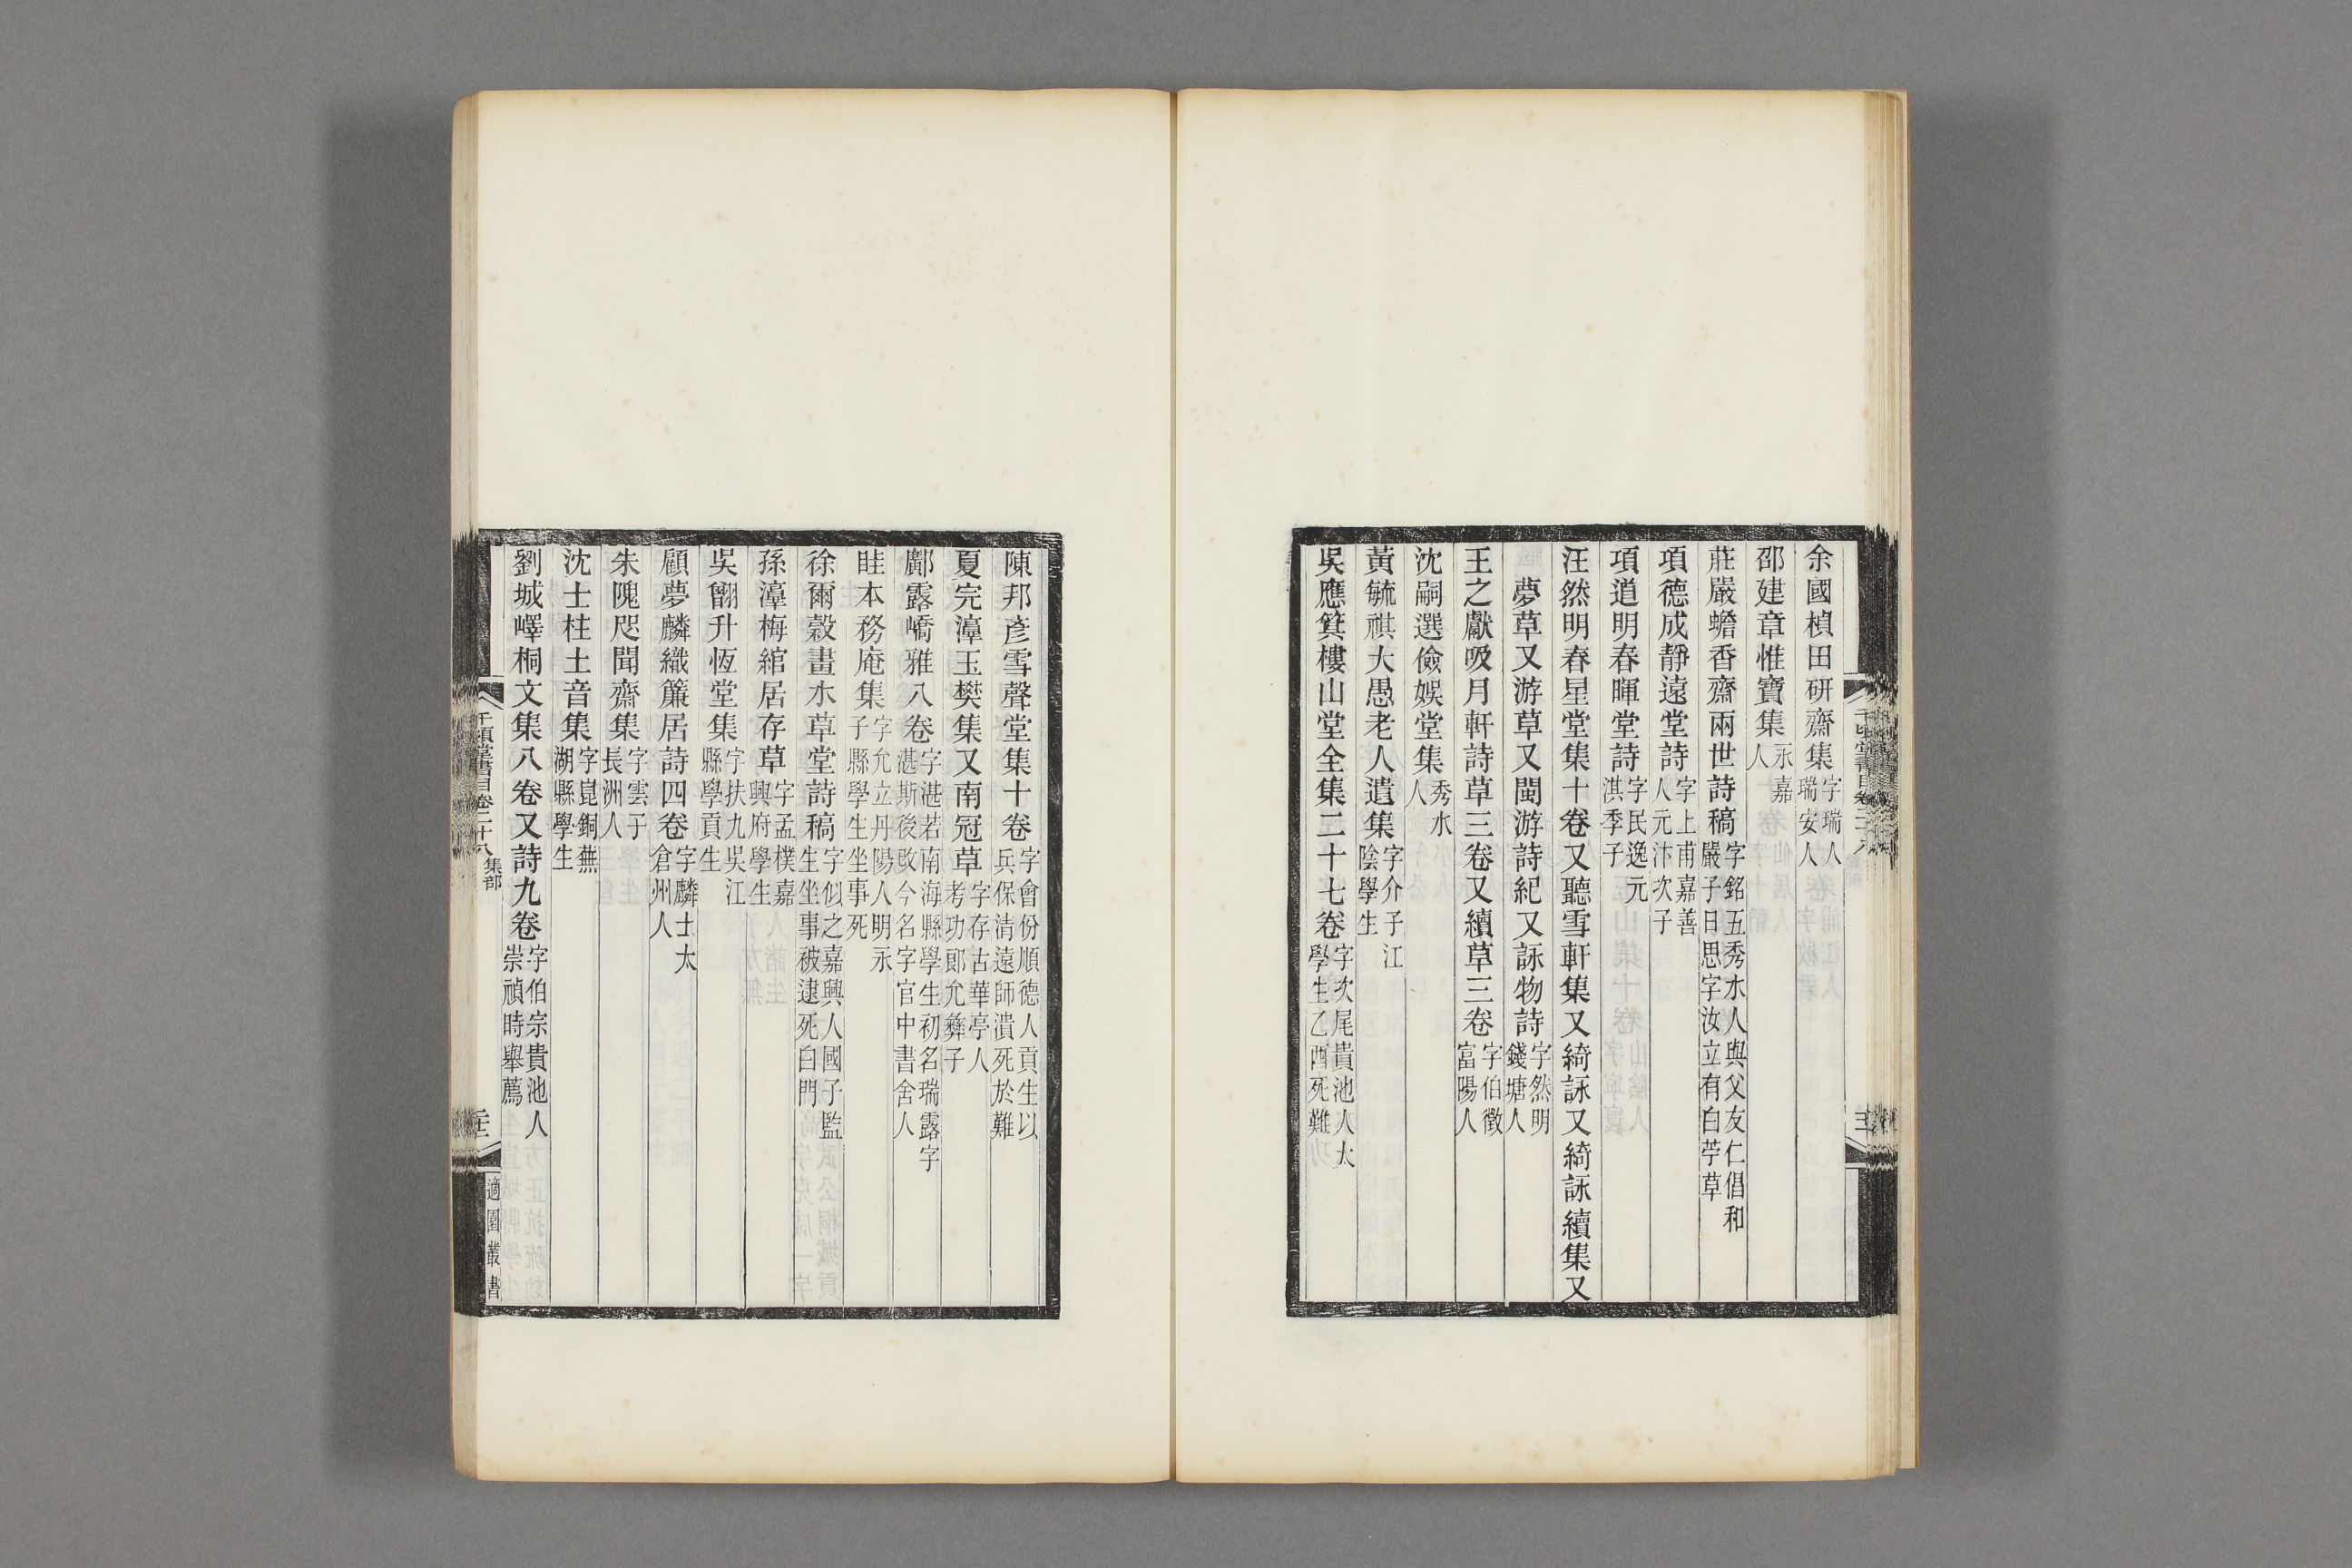 余國楨田研齋集字瑞人瑞安人
邵建章惟寶集永嘉人
莊嚴蟾香齋兩世詩稿字銘五秀水人與父友仁倡和嚴子日思字汝立有白苧草
項德成靜遠堂詩字上甫嘉善人元汴次子
項道明春暉堂詩字民逸元淇季子
汪然明春星堂集十卷又聽雪軒集又綺詠又綺詠續集又
夢草又游草又閩游詩紀又詠物詩字然明錢塘人
王之獻吸月軒詩草三卷又續草三卷字伯徵富陽人
沈嗣選儉娛堂集秀水人
黃毓祺大愚老人遺集字介子江陰學生
吳應箕樓山堂全集二十七卷字次尾貴池人太學生乙酉死難
陳邦彥雪聲堂集十卷字會份順德人貢生以兵保清遠師潰死於難
夏完淳玉樊集又南冠草字存古華亭人考功郎允彝子
鄺露嶠雅八卷字湛若南海縣學生初名瑞露字湛斯後改今名字官中書舍人
眭本務庵集字允立丹陽人明永子縣學生坐事死
徐爾穀畫水草堂詩稿字似之嘉興人國子監生坐事被逮死白門
孫漳梅綰居存草字孟樸嘉興府學生
吳翻升恆堂集字扶九吳江縣學貢生
顧夢麟織簾居詩四卷字麟士太倉州人
朱隗咫聞齋集字雲子長洲人
沈士柱土音集字崑銅蕪湖縣學生
劉城嶧桐文集八卷又詩九卷字伯宗貴池人崇禎時舉薦
千頃堂書目卷二十八 集部
適園叢書